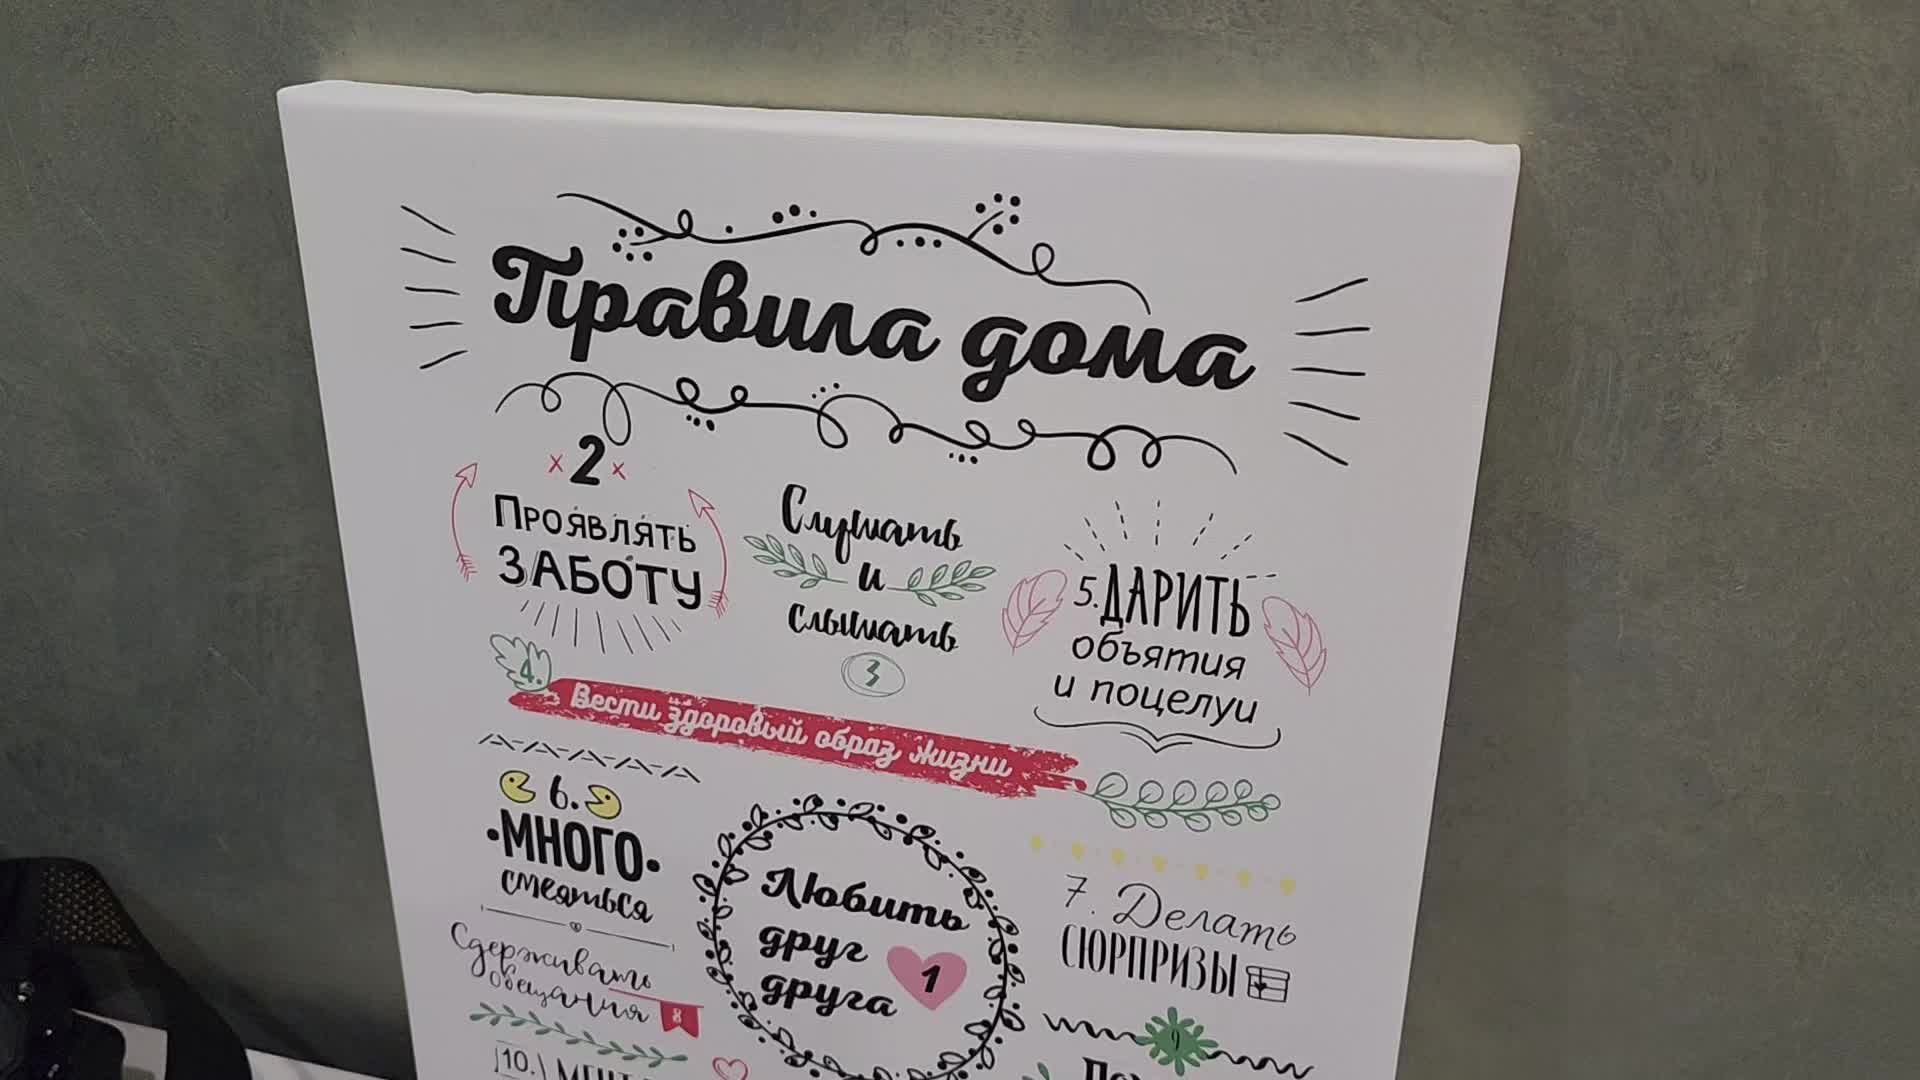 Правила дома
2
Проявлять
ЗАБОТУ
Слушать
и
слышать
3
5. ДАРИТЬ
объятия
и поцелуи
4.
Вести здоровый образ жизни
6.
МНОГО
смеяться
Любить
друг
друга
1
7. Делать
СЮРПРИЗЫ
Сдерживать
обещания
8
9
10.